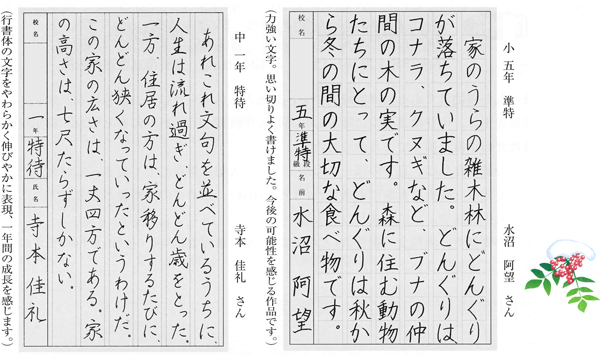 小 五年 準特
水沼 阿望 さん
家のうらの雑木林にどんぐり
が落ちていました。どんぐりは
コナラ、クヌギなど、ブナの仲
間の木の実です。森に住む動物
たちにとって、どんぐりは秋か
ら冬の間の大切な食べ物です。
校名
五年
準特
級段
名前
水沼阿望
(力強い文字。思い切りよく書けました。今後の可能性を感じる作品です。)
中 一年 特待
寺本 佳礼 さん
あれこれ文句を並べているうちに、
人生は流れ過ぎ、どんどん歳をとった。
一方、住居の方は、家移りするたびに、
どんどん狭くなっていったというわけだ。
この家の広さは、一丈四方である。家
の高さは、七尺たらずしかない。
校名
一年
特待
氏名
寺本佳礼
(行書体の文字をやわらかく伸びやかに表現、一年間の成長を感じます。)